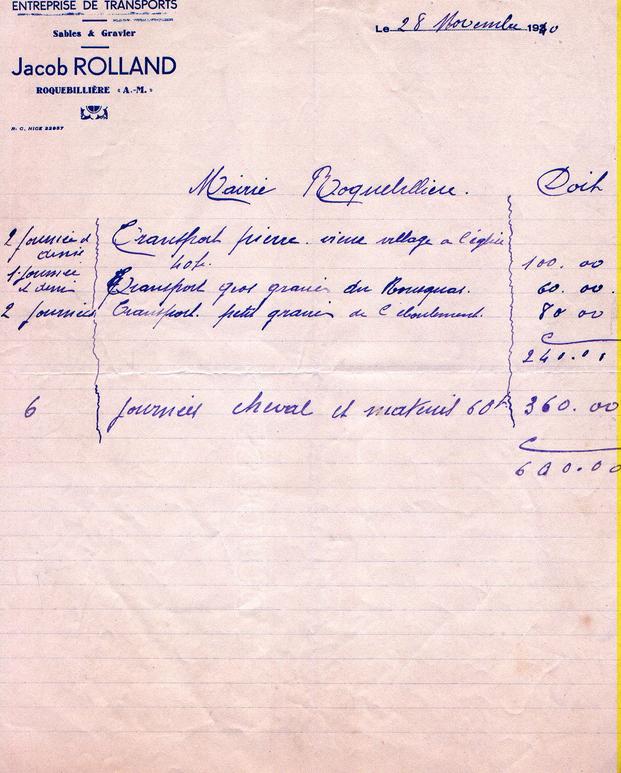 ENTREPRISE DE TRANSPORTS
Sables & Gravier
Jacob ROLLAND
ROQUEBILLIÈRE (A.-M.)
R. C. NICE 22957
Le 28 Novembre 1940
Mairie Roquebilliere. Doit
2 journée et demie Transport pierre. vieux village a l'église 40f. 100.00
1 journee et demi Transport gros gravier du Bousquas. 60.00
2 journées Transport. petit gravier de l'eboulement. 80 00
240.00
6 journées cheval et materiel 60f 360.00
600.00